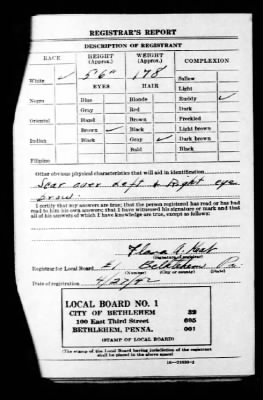 REGISTRAR'S REPORT
DESCRIPTION OF REGISTRANT
RACE HEIGHT (Approx.) WEIGHT (Approx.) COMPLEXION
White ✓ 5'6" 178 Sallow
EYES HAIR Light
Negro Blue Blonde Ruddy ✓
Gray Red Dark
Oriental Hazel Brown Freckled
Brown ✓ Black Light brown
Indian Black Gray ✓ Dark brown
Bald Black
Filipino
Other obvious physical characteristics that will aid in identification
Scar over Left & Right eye
brow.
I certify that my answers are true; that the person registered has read or has had
read to him his own answers; that I have witnessed his signature or mark and that
all of his answers of which I have knowledge are true, except as follows:
(Signature of registrar)
Registrar for Local Board #1 Bethlehem Pa.
(Number) (City or county) (State)
Date of registration 4/27/42
LOCAL BOARD NO. 1
CITY OF BETHLEHEM 32
100 East Third Street 695
BETHLEHEM, PENNA. 001
(STAMP OF LOCAL BOARD)
(The stamp of the Local Board having jurisdiction of the registrant
shall be placed in the above space)